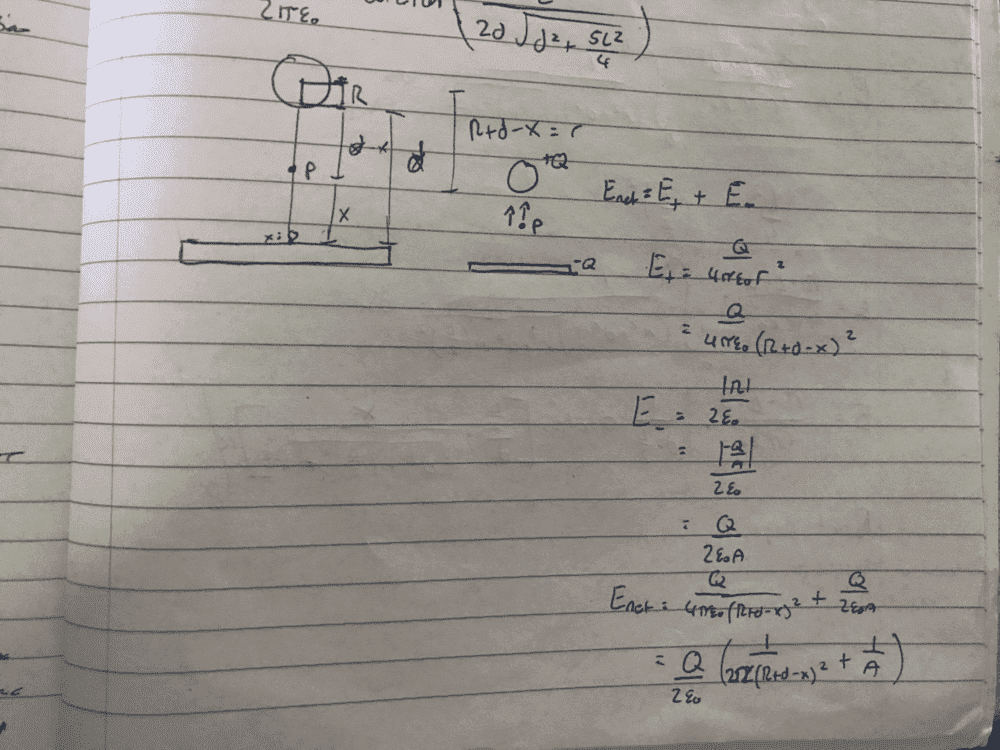 2πε₀
2d √(d² + 5L²/4)
R
R+d-x = r
d-x
d
P
x
x=0
+Q
P
-Q
Enet = E₊ + E₋
E₊ = Q/(4πε₀r²)
= Q/(4πε₀(R+d-x)²)
E₋ = |η|/(2ε₀)
= |-Q/A|/(2ε₀)
= Q/(2ε₀A)
Enet = Q/(4πε₀(R+d-x)²) + Q/(2ε₀A)
= Q/(2ε₀) (1/(2π(R+d-x)²) + 1/A)